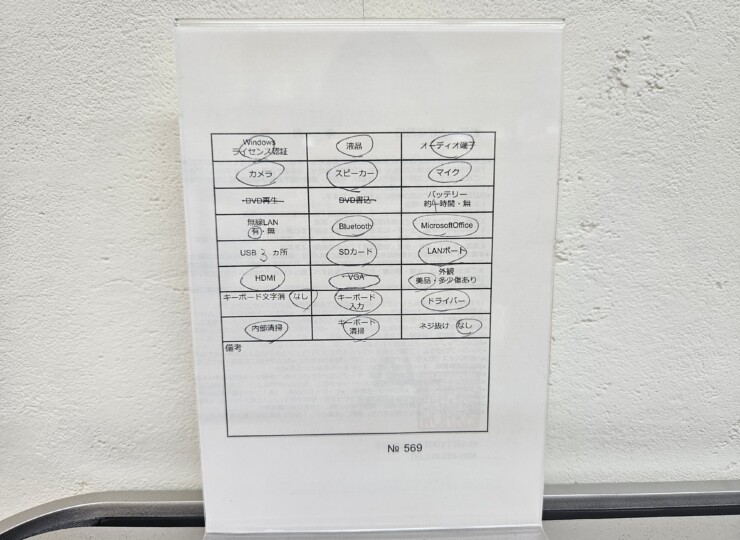 Windows
ライセンス認証
液晶
オーディオ端子
カメラ
スピーカー
マイク
DVD再生
DVD書込
バッテリー
約4時間・無
無線LAN
有・無
Bluetooth
MicrosoftOffice
USB 3 カ所
SDカード
LANポート
HDMI
VGA
外観
美品・多少傷あり
キーボード文字消 なし
キーボード
入力
ドライバー
内部清掃
キーボード
清掃
ネジ抜け なし
備考
№ 569